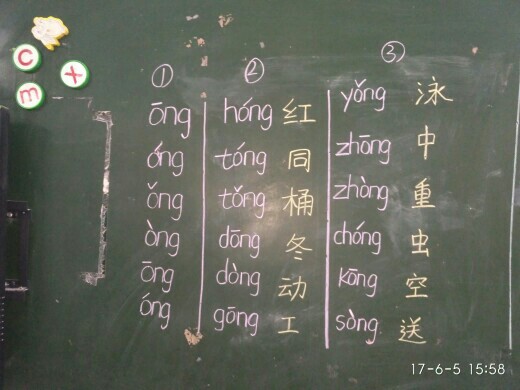 C
x
m
① ② ③
ōng hóng 红 yǒng 泳
óng tóng 同 zhōng 中
ǒng tǒng 桶 zhòng 重
òng dōng 冬 chóng 虫
ōng dòng 动 kōng 空
óng gōng 工 sòng 送
17-6-5 15:58